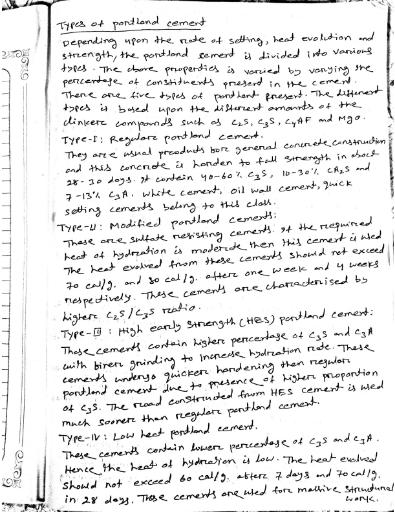 Types of portland cement
Depending upon the rate of setting, heat evolution and
strength, the portland cement is divided into various
types. The above properties is varied by varying the
percentage of constituents present in the cement.
There are five types of portland present. The different
types is based upon the different amounts of the
clinkers compounds such as C2S, C3S, C4AF and MgO.
Type-I: Regular portland cement.
They are usual products for general concrete construction
and this concrete is harden to full strength in about
28-30 days. It contain 40-60% C3S, 10-30% C2S and
7-13% C3A. White cement, oil wall cement, quick
setting cements belong to this class.
Type-II: Modified portland cements:
These are sulfate resisting cements. If the required
heat of hydration is moderate then this cement is used
The heat evolved from these cements should not exceed
70 cal/g. and 80 cal/g. after one week and 4 weeks
respectively. These cements are characterised by
higher C2S/C3S ratio.
Type-III: High early strength (HES) portland cement:
These cements contain higher percentage of C3S and C3A
with finer grinding to increase hydration rate. These
cements undergo quicker hardening then regular
portland cement due to presence of higher proportion
of C3S. The road constructed from HES cement is used
much sooner than regular portland cement.
Type-IV: Low heat portland cement.
These cements contain lower percentage of C3S and C3A.
Hence the heat of hydration is low. The heat evolved
should not exceed 60 cal/g. after 7 days and 70 cal/g.
in 28 days. These cements are used for massive structural
work.